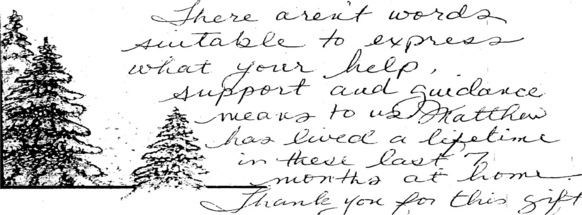 There aren't words
suitable to express
what your help,
support and guidance
means to us. Matthew
has lived a lifetime
in these last 7
months at home.
Thank you for this gift